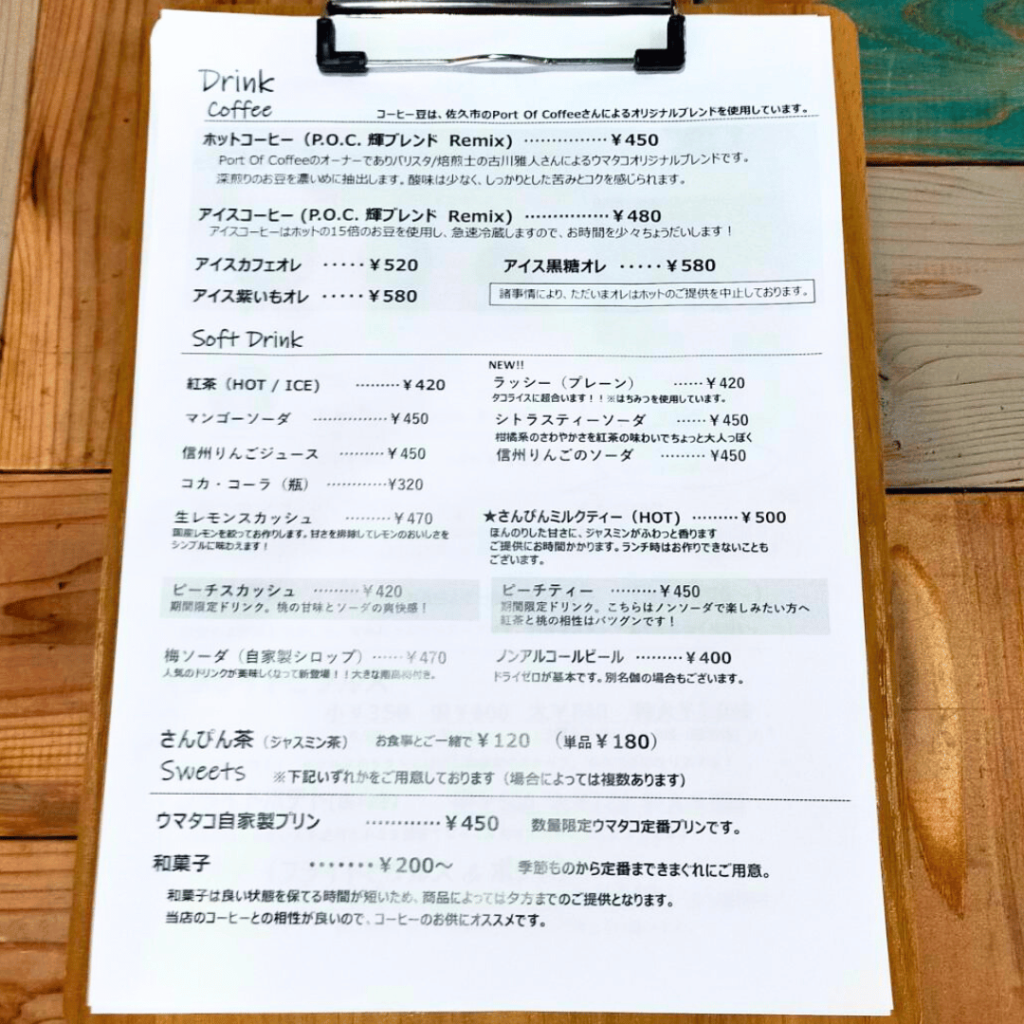 Drink
Coffee
コーヒー豆は、佐久市のPort Of Coffeeさんによるオリジナルブレンドを使用しています。
ホットコーヒー (P.O.C. 輝ブレンド Remix) ・・・・・・・・・・・・・・・ ¥450
Port Of Coffeeのオーナーでありバリスタ/焙煎士の古川雅人さんによるウマタコオリジナルブレンドです。
深煎りのお豆を濃いめに抽出します。酸味は少なく、しっかりとした苦みとコクを感じられます。
アイスコーヒー (P.O.C. 輝ブレンド Remix) ・・・・・・・・・・・・・・・ ¥480
アイスコーヒーはホットの1.5倍のお豆を使用し、急速冷蔵しますので、お時間を少々ちょうだいします!
アイスカフェオレ ・・・・・ ¥520
アイス黒糖オレ ・・・・・ ¥580
アイス紫いもオレ ・・・・・ ¥580
諸事情により、ただいまオレはホットのご提供を中止しております。
Soft Drink
紅茶 (HOT / ICE) ・・・・・・・・・ ¥420
NEW!!
ラッシー (プレーン) ・・・・・・ ¥420
タコライスに超合います!!※はちみつを使用しています。
マンゴーソーダ ・・・・・・・・・・・・・・ ¥450
シトラスティーソーダ ・・・・・・ ¥450
柑橘系のさわやかさを紅茶の味わいでちょっと大人っぽく
信州りんごジュース ・・・・・・・・・ ¥450
信州りんごのソーダ ・・・・・・・・・ ¥450
コカ・コーラ (瓶) ・・・・・・・・・・・・ ¥320
生レモンスカッシュ ・・・・・・・・・ ¥470
国産レモンを絞ってお作りします。甘さを排除してレモンのおいしさを
シンプルに味わえます!
★さんぴんミルクティー (HOT) ・・・・・・・・・ ¥500
ほんのりした甘さに、ジャスミンがふわっと香ります
ご提供にお時間かかります。ランチ時はお作りできないことも
ございます。
ピーチスカッシュ ・・・・・・・・・ ¥420
期間限定ドリンク。桃の甘味とソーダの爽快感!
ピーチティー ・・・・・・・・・ ¥450
期間限定ドリンク。こちらはノンソーダで楽しみたい方へ
紅茶と桃の相性はバツグンです!
梅ソーダ (自家製シロップ) ・・・・・・ ¥470
人気のドリンクが美味しくなって新登場!!大きな南高梅付き。
ノンアルコールビール ・・・・・・・・・ ¥400
ドライゼロが基本です。別名伽の場合もございます。
さんぴん茶 (ジャスミン茶) お食事とご一緒で ¥120 (単品 ¥180)
Sweets ※下記いずれかをご用意しております (場合によっては複数あります)
ウマタコ自家製プリン ・・・・・・・・・・・・ ¥450 数量限定ウマタコ定番プリンです。
和菓子 ・・・・・・・ ¥200〜 季節ものから定番まできまぐれにご用意。
和菓子は良い状態を保てる時間が短いため、商品によっては夕方までのご提供となります。
当店のコーヒーとの相性が良いので、コーヒーのお供にオススメです。